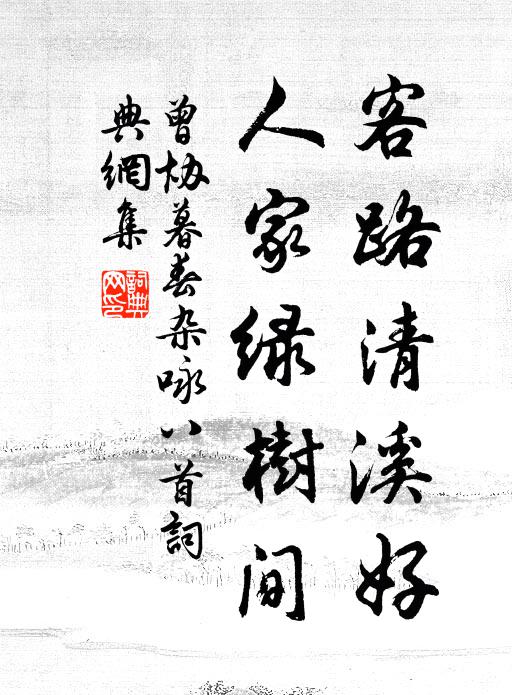 客路清溪好
人家绿樹间
曾协暮春杂咏八首詞
典網集
詞典
网印